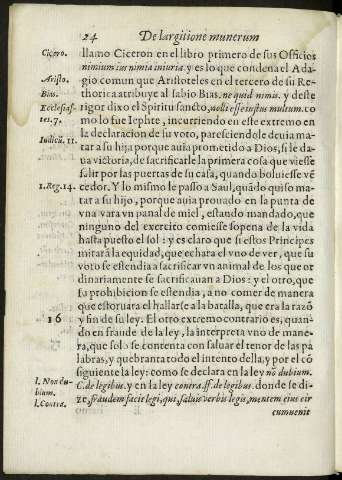 24 De largitione munerum
Cicero. llamo Ciceron en el libro primero de sus Officios
nimium ius nimia iniuria. y es lo que condena el Ada-
Aristo. gio comun que Aristoteles en el tercero de su Re-
Bias. thorica atribuye al sabio Bias. ne quid nimis. y deste
Ecclesias- rigor dixo el Spiritu sancto, nolli esse iustus multum. co
tes. 7. mo lo fue Iephte, incurriendo en este extremo en
la declaracion de su voto, pareciendole deuia ma-
Iudicũ. 11. tar a su hija porque auia prometido a Dios, si le da
ua victoria, de sacrificarle la primera cosa que viesse
salir por las puertas de su casa, quando boluiesse vẽ
1. Reg. 14. cedor. Y lo mismo le passo a Saul, quãdo quiso ma-
tar a su hijo, porque auia prouado en la punta de
vna vara vn panal de miel, estando mandado, que
ninguno del exercito comiesse sopena de la vida
hasta puesto el sol: y es claro que si estos Principes
mitarã la equidad, que echara el vno de ver, que su
voto se estendia a sacrificar vn animal de los que or
dinariamente se sacrificauan a Dios: y el otro, que
su prohibicion se estendia, a no comer de manera
que estoruara el hallarse a la batalla, que era la razõ
16 y fin de su ley. El otro extremo contrario es, quan-
do en fraude de la ley, la interpreta vno de mane-
ra, que solo se contenta con saluar el tenor de las pa
labras, y quebranta todo el intento della, y por el cõ
l. Non du- siguiente la ley: como se declara en la ley nõ dubium.
bium. C. de legibus. y en la ley contra. ff. de legibus. donde se di-
l. Contra. ze, fraudem facit legi, qui, saluis verbis legis, mentem eius cir
cumuenit